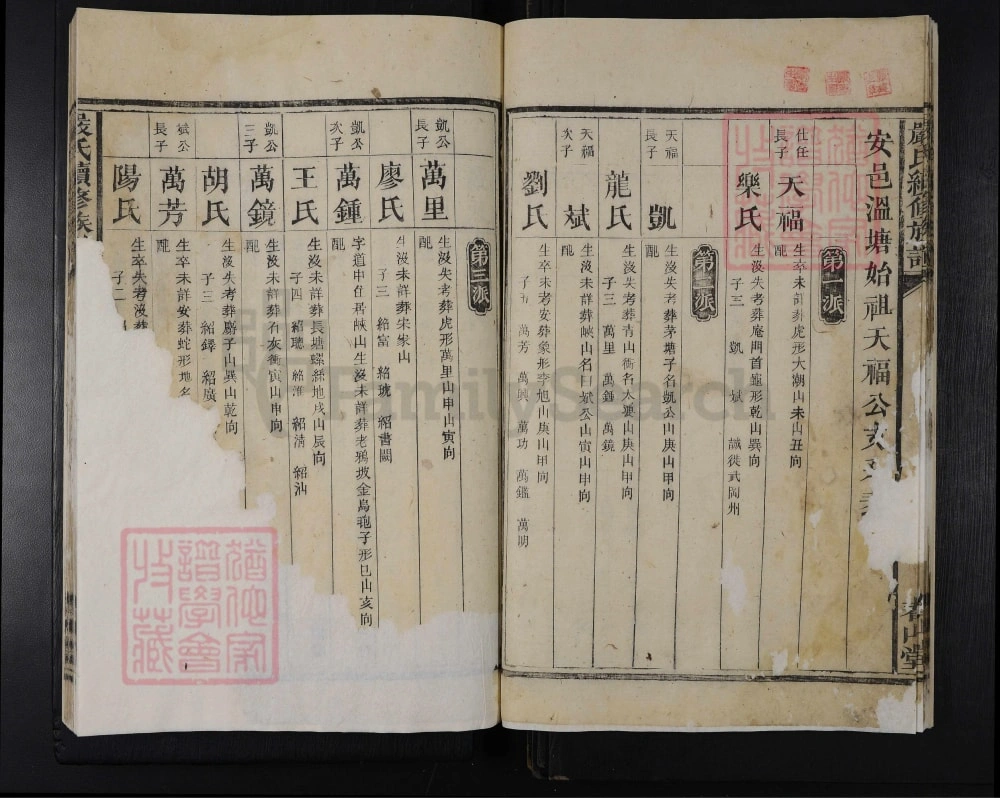 安邑溫塘始祖天福公支
第一派
仕任長子
天福
生卒未詳葬虎形大潮山未山丑向
配
樂氏
生沒失考葬庵門首龜形乾山巽向
子二 凱 斌
第二派
天福長子
凱
生沒失考葬茅塘子名凱公山庚山甲向
配
龍氏
生沒失考葬青山
子三 萬里 萬鍾 萬鏡
天福次子
斌
生沒未詳葬峽山名曰斌公山寅山申向
配
劉氏
生卒未考安葬象形李旭山庚山甲向
子五 萬芳 萬興 萬功 萬鑑 萬明
春山堂
第三派
凱公長子
萬里
生沒失考葬虎形萬里山申山寅向
配
廖氏
生沒未詳葬宋家山
子三 紹富 紹琥 紹書
凱公次子
萬鍾
字道申住居峽山生沒未詳葬老鴉坡金烏
形巳山亥向
配
王氏
生沒未詳葬長塘螺絲地戌山辰向
子四 紹聰 紹淮 紹清 紹汕
凱公三子
萬鏡
生沒未詳葬石灰衝寅山申向
配
胡氏
生沒失考葬廟子山巽山乾向
子三 紹鐸 紹廣
斌公長子
萬芳
生卒未詳安葬蛇形地名
配
陽氏
生卒失考沒葬
子二
嚴氏續修族
猶他家譜學會特藏
FamilySearch